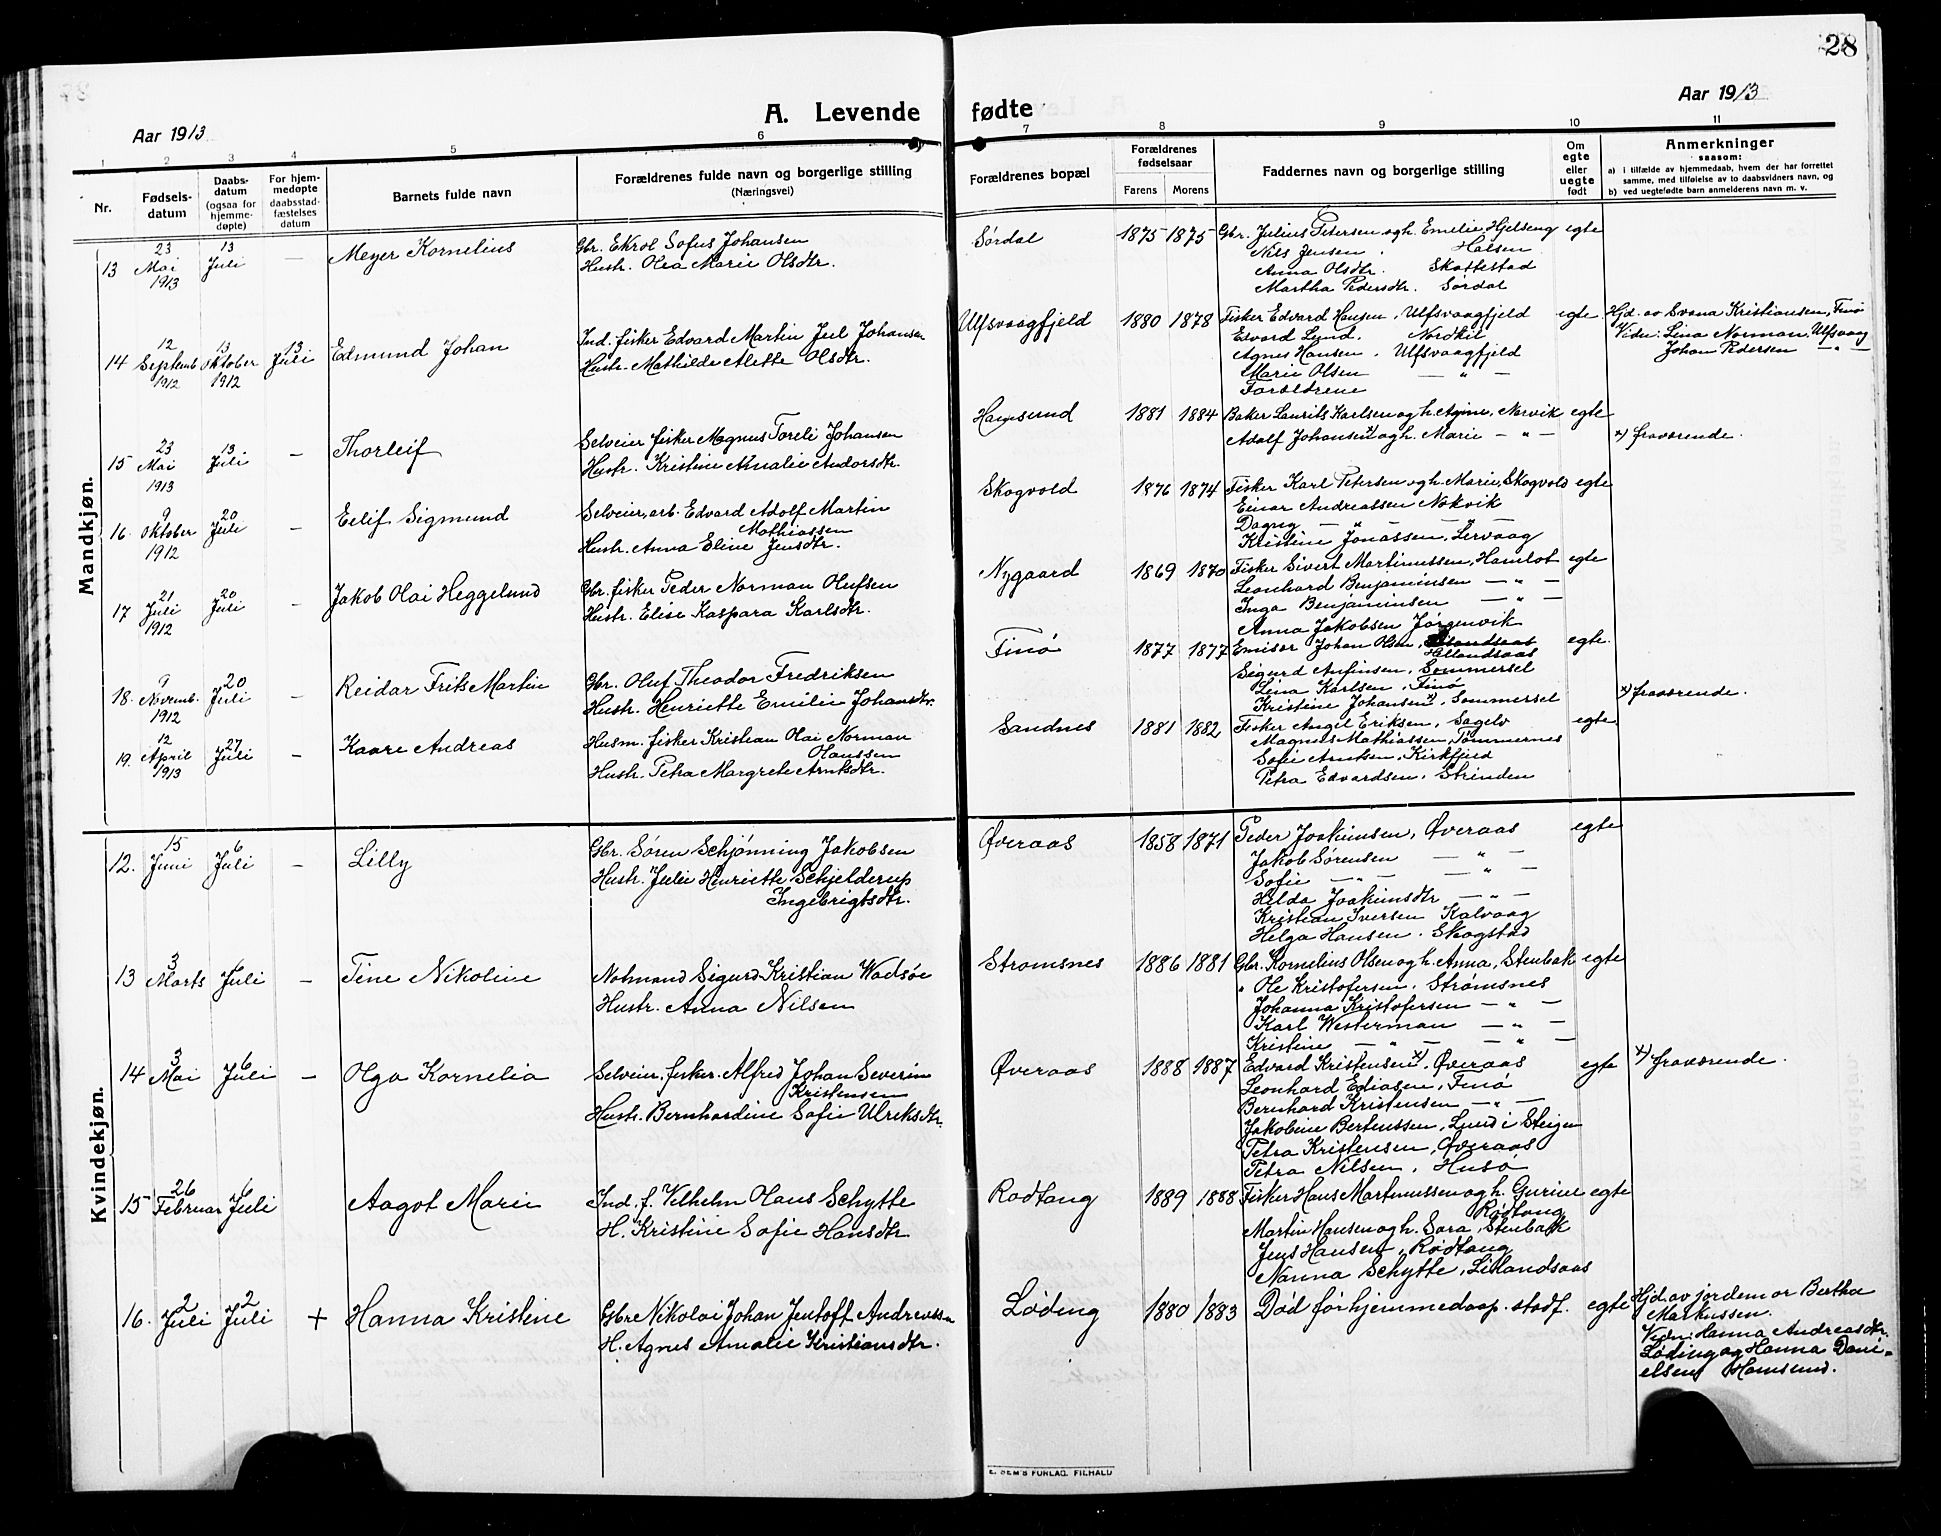 28
A. Levende fødte
Aar 1913
Aar 1913
1 2 3 4 5 6 7 8 9 10 11
Nr.
Fødsels-
datum
Daabs-
datum
(ogsaa for
hjemme-
døpte)
For hjem-
medøpte
daabsstad-
fæstelses
datum
Barnets fulde navn
Forældrenes fulde navn og borgerlige stilling
(Næringsvei)
Forældrenes bopæl
Forældrenes
fødselsaar
Farens Morens
Faddernes navn og borgerlige stilling
Om
egte
eller
uegte
født
Anmerkninger
saasom:
a) i tilfælde av hjemmedaab, hvem der har forrettet
samme, med tilføielse av to daabsvidners navn, og
b) ved uegtefødte barn anmelderens navn m. v.
Mandkjøn.
13 23 Mai 1913 13 Juli — Meyer Kornelius
Gbr. Ekrol Sofus Johansen
Hustr. Olea Marie Olsdtr.
Sørdal 1875 1875
Gbr. Julius Petersen og h. Emelie Hjelseng egte
Nils Jensen Halsen
Anna Olsdtr. Skottestad
Martha Pedersdtr. Sørdal
14 12 Septemb 1912 13 Oktober 1912 13 Juli Edmund Johan
Ind. fisker Edvard Martin Juel Johansen
Hustr. Mathilde Alette Olsdtr.
Ulfsvaagfjeld 1880 1878
Fisker Edvard Hansen, Ulfsvaagfjeld egte
Edvard Lund, Nordkil
Agnes Hansen, Ulfsvaagfjeld
Marie Olsen — " —
Forældrene
Hjd. av Svana Kristiansen, Finø
Vidn: Lina Norman, Ulfsvaag
Johan Pedersen — " —
15 23 Mai 1913 13 Juli — Thorleif
Selveier fisker Magnus Toreli Johansen
Hustr. Kristine Amalie Andorsdtr.
Hamsund 1881 1884
Baker Laurits Karlsen og h. Agine, Narvik egte
Adolf Johansen x) og h. Marie — " —
x) fraværende.
16. 9 Oktober 1912 20 Juli — Eilif Sigmund
Selveier, arb. Edvard Adolf Martin
Mathiassen
Hustr. Anna Eline Jensdtr.
Skogvold 1876 1874
Fisker Karl Petersen og h. Marie, Skogvold egte
Einar Andreassen Nokvik
Dagny — " — — " —
Kristine Jonassen, Lervaag
17 21 Juli 1912 20 Juli — Jakob Olai Heggelund
Gbr. fisker Peder Norman Olufsen
Hustr. Elise Kaspara Karlsdtr.
Nygaard 1869 1870
Fisker Sivert Martinussen, Hamlot egte
Leonhard Benjaminsen — " —
Inga Benjaminsen — " —
Anna Jakobsen Jørgenvik
18. 9 Novemb. 1912 20 Juli — Reidar Frits Martin
Gbr. Oluf Theodor Fredriksen
Hustr. Henriette Emilie Johansdtr.
Finø 1877 1877
Emisær Johan Olsen, egte.
Sigurd Anfinsen, Sommersel
Lina Karlsen, Finø
Kristine Johansen x), Sommersel
x) fraværende.
19. 12 April 1913 27 Juli — Kaare Andreas
Husm. fisker Kristian Olai Norman
Hanssen
Hustr. Petra Margrete Arntsdtr.
Sandnes 1881 1882
Fisker Angel Eriksen, Sagelv egte
Magnus Mathiassen, Tømmernes
Sofie Arntsen, Kirkfjeld
Petra Edvardsen, Strinden
Kvindekjøn.
12. 15 Juni 6 Juli — Lilly
Gbr. Søren Schjønning Jakobsen
Hustr. Julie Henriette Schjelderup
Ingebrigtsdtr.
Øveraas 1858 1871
Peder Joakimsen, Øveraas egte
Jakob Sørensen — " —
Sofie — " — — " —
Hilda Joakimsdtr — " —
Kristian Iversen Kalvaag
Helga Hansen, Skogstad
13 3 Marts 6 Juli — Tine Nikoline
Notmand Sigurd Kristian Wadsøe
Hustr. Anna Nilsen
Strømsnes 1886 1881
Gbr. Kornelius Olsen og h. Anna, Stenbak egte
" Ole Kristofersen, Strømsnes
Johanna Kristofersen — " —
Karl Westerman — " —
Kristine — " — — " —
14 3 Mai 6 Juli — Olga Kornelia
Selveier, fisker Alfred Johan Severin
Kristensen
Hustr. Bernhardine Sofie Ulriksdtr.
Øveraas 1888 1887
Edvard Kristensen x), Øveraas egte
Leonhard Ediasen, Finø
Bernhard Kristensen — " —
Jakobine Berteussen, Lund i Steigen
Petra Kristensen, Øveraas
Petra Nilsen, Husø
x) fraværende.
15 26 Februar 6 Juli Aagot Marie
Ind. f. Vilhelm Hans Schytte
H. Kristine Sofie Hansdtr
Rødtang 1889 1888
Fisker Hans Martinussen og h. Gurine egte
Rødtang
Martin Hansen og h. Sara, Stenbak
Jens Hansen, Rødtang
Nanna Schytte, Lillandsaas
16. 2 Juli 2 Juli + Hanna Kristine
Gbr. Nikolai Johan Jentoft Andreassen
H. Agnes Amalie Kristiansdtr.
Løding 1880 1883
Død før hjemmedaap. stadf. egte
Hjd. av jordemor Bertha
Markussen.
Vidn: Hanna Andreasdtr.
Løding og Hanna Dani-
elsen Hamsund.
E. SEM'S FORLAG, F.HALD